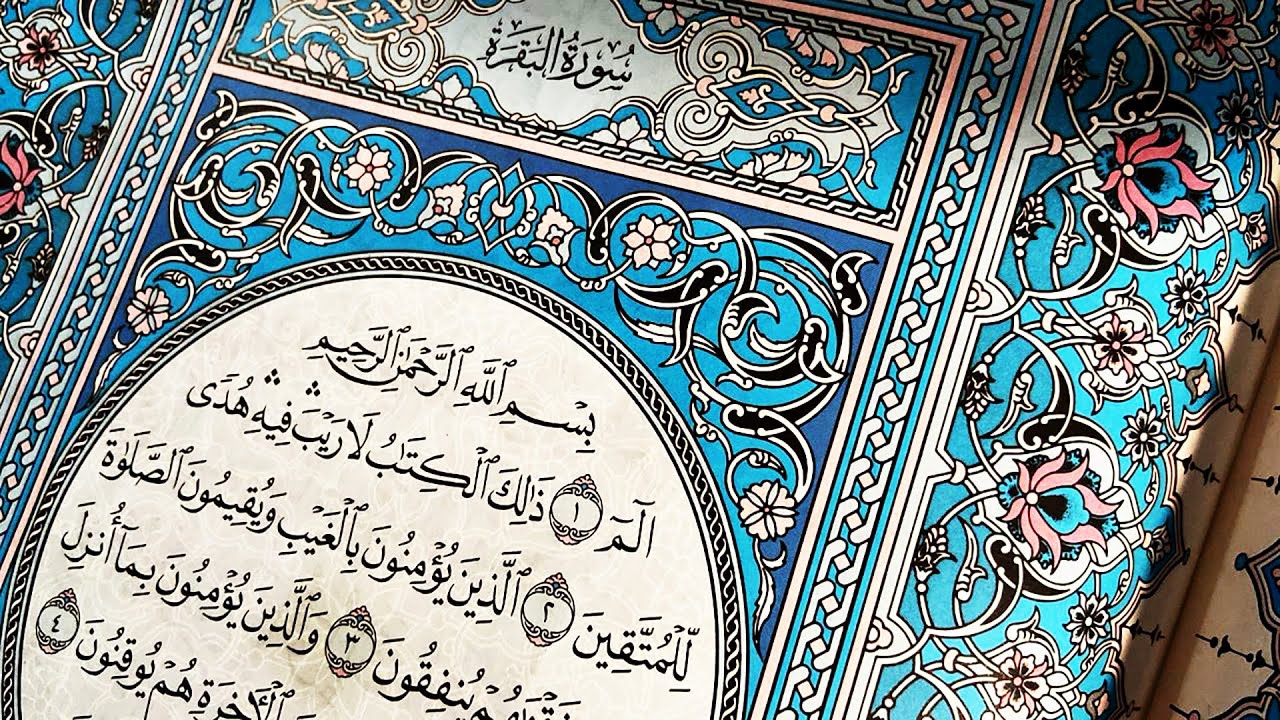 سُورَةُ البَقَرَةِ
بِسْمِ ٱللَّهِ ٱلرَّحْمَٰنِ ٱلرَّحِيمِ
الٓمٓ ١ ذَٰلِكَ ٱلْكِتَٰبُ لَا رَيْبَ ۛ فِيهِ ۛ هُدًى
لِّلْمُتَّقِينَ ٢ ٱلَّذِينَ يُؤْمِنُونَ بِٱلْغَيْبِ وَيُقِيمُونَ ٱلصَّلَوٰةَ
يُنفِقُونَ ٣ وَٱلَّذِينَ يُؤْمِنُونَ بِمَآ أُنزِلَ
ٱلْأٓخِرَةِ هُمْ يُوقِنُونَ ٤